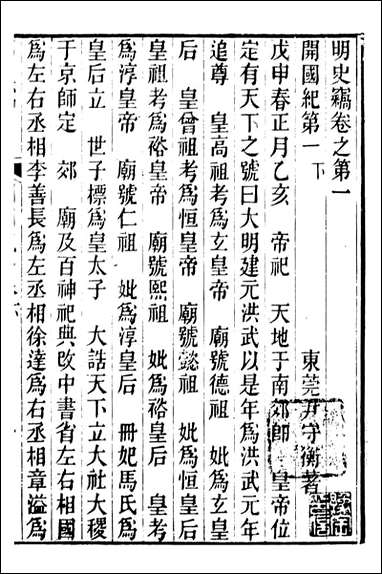 明史竊卷之第一
開國紀第一下　東莞尹守衡著
戊申春正月乙亥　帝祀　天地于南郊卽　皇帝位
定有天下之號曰大明建元洪武以是年爲洪武元年
追尊　皇高祖考爲玄皇帝　廟號德祖　妣爲玄皇
后　皇曾祖考爲恒皇帝　廟號懿祖　妣爲恒皇后
皇祖考爲裕皇帝　廟號熙祖　妣爲裕皇后　皇考
爲淳皇帝　廟號仁祖　妣爲淳皇后　冊妃馬氏爲
皇后立　世子標爲皇太子　大誥天下立大社大稷
于京師定　郊　廟及百神祀典改中書省左右相國
爲左右丞相李善長爲左丞相徐達爲右丞相章溢爲